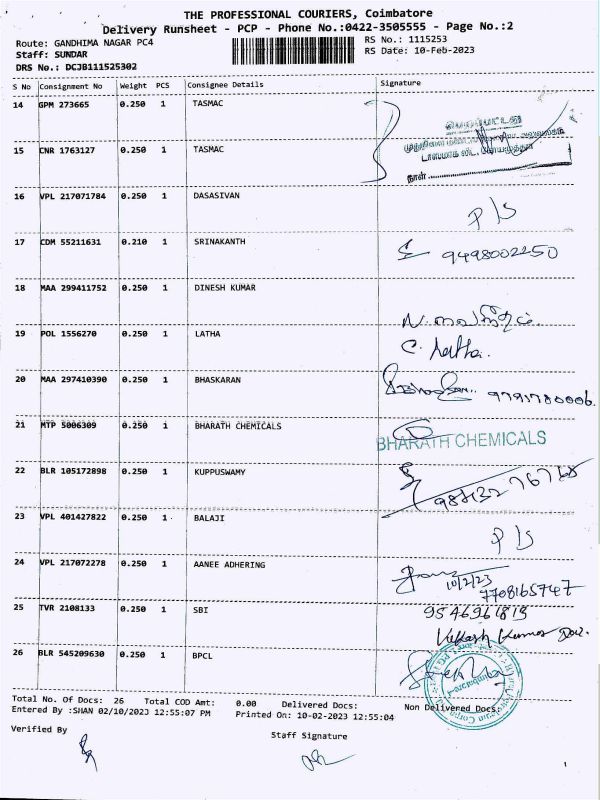 THE PROFESSIONAL COURIERS, Coimbatore
Delivery Runsheet - PCP - Phone No.:0422-3505555 - Page No.:2
Route: GANDHIMA NAGAR PC4
RS No.: 1115253
Staff: SUNDAR
RS Date: 10-Feb-2023
DRS No.: DCJB111525302
S No Consignment No Weight PCS Consignee Details Signature
14 GPM 273665 0.250 1 TASMAC
15 CNR 1763127 0.250 1 TASMAC
நாள்
16 VPL 217071784 0.250 1 DASASIVAN
P/S
17 CDM 55211631 0.210 1 SRINAKANTH
9498002250
18 MAA 299411752 0.250 1 DINESH KUMAR
19 POL 1556270 0.250 1 LATHA
C. Latha.
20 MAA 297410390 0.250 1 BHASKARAN
9791780006.
21 MTP 5006309 0.250 1 BHARATH CHEMICALS
BHARATH CHEMICALS
22 BLR 105172898 0.250 1 KUPPUSWAMY
23 VPL 401427822 0.250 1 BALAJI
P/S
24 VPL 217072278 0.250 1 AANEE ADHERING
10/2/23
7708165747
25 TVR 2108133 0.250 1 SBI
9546961819
26 BLR 545209630 0.250 1 BPCL
Total No. Of Docs: 26 Total COD Amt: 0.00 Delivered Docs: Non Delivered Docs:
Entered By :SHAN 02/10/2023 12:55:07 PM Printed On: 10-02-2023 12:55:04
Verified By
Staff Signature
1